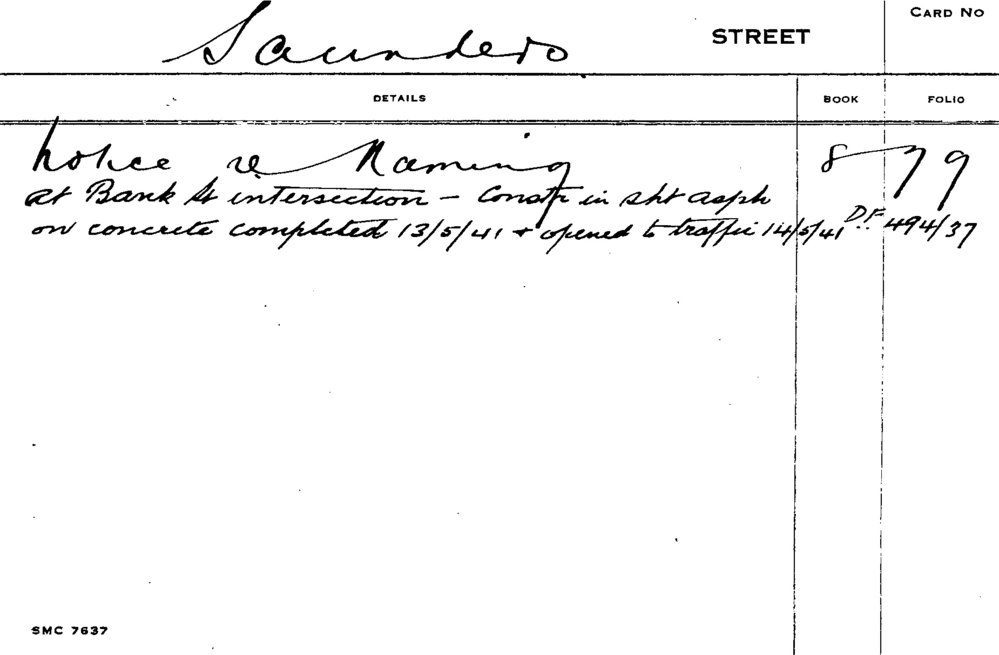 CARD NO
Saunders STREET
DETAILS BOOK FOLIO
Notice re Naming 8 79
at Bank St intersection – Constr in sht asph
on concrete completed 13/5/41 + opened to traffic 14/5/41 D.F. 494/37
SMC 7637